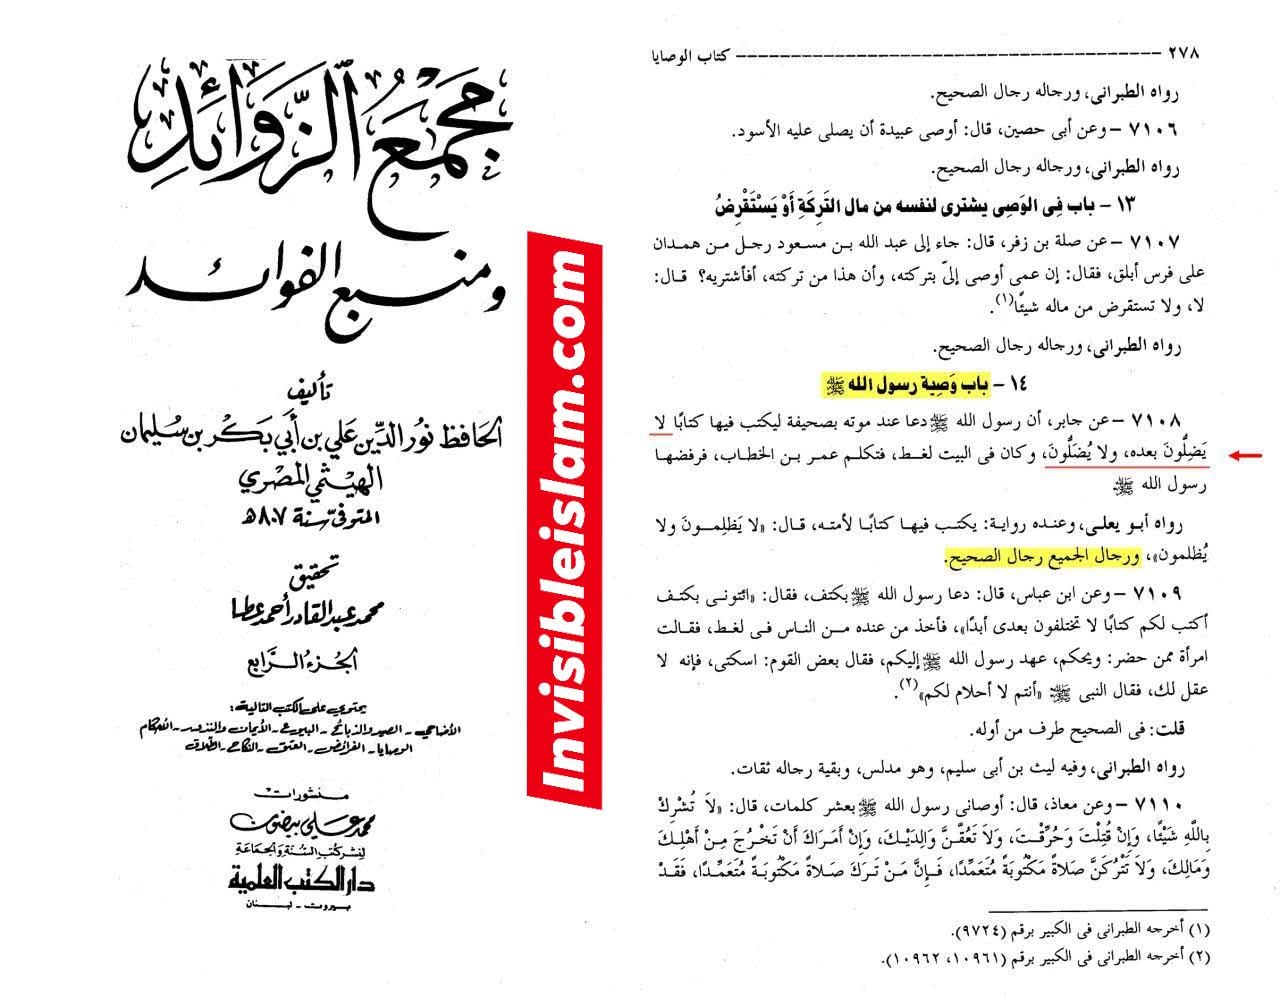 مجمع الزوائد
ومنبع الفوائد
تأليف
الحافظ نور الدين علي بن أبي بكر بن سليمان
الهيثمي المصري
المتوفى سنة ٨٠٧ هـ
تحقيق
محمد عبد القادر أحمد عطا
الجزء الرابع
يحتوي على الكتب التالية:
الأضاحي - الصيد والذبائح - البيوع - الأيمان والنذور - الأحكام
الوصايا - الفرائض - العتق - النكاح - الطلاق
منشورات
محمد علي بيضون
لنشر كتب السنة والجماعة
دار الكتب العلمية
بيروت - لبنان
Invisibleislam.com
٢٧٨ ــــــــــــــــــــ كتاب الوصايا
رواه الطبرانى، ورجاله رجال الصحيح.
٧١٠٦ – وعن أبى حصين، قال: أوصى عبيدة أن يصلى عليه الأسود.
رواه الطبرانى، ورجاله رجال الصحيح.
١٣ – باب فِى الوَصِى يشترى لنفسه من مال التَرِكَةِ أَوْ يَسْتَقْرِضُ
٧١٠٧ – عن صلة بن زفر، قال: جاء إلى عبد الله بن مسعود رجل من همدان
على فرس أبلق، فقال: إن عمى أوصى إلىّ بتركته، وأن هذا من تركته، أفأشتريه؟ قال:
لا، ولا تستقرض من ماله شيئًا(١).
رواه الطبرانى، ورجاله رجال الصحيح.
١٤ – باب وَصِية رسول الله ﷺ
٧١٠٨ – عن جابر، أن رسول الله ﷺ دعا عند موته بصحيفة ليكتب فيها كتابًا لا
يَضِلُّونَ بعده، ولا يُضَلُّونَ، وكان فى البيت لغط، فتكلم عمر بن الخطاب، فرفضها
رسول الله ﷺ
رواه أبو يعلى، وعنده رواية: يكتب فيها كتابًا لأمته، قال: «لا يَظلِمونَ ولا
يُظلمون»، ورجال الجميع رجال الصحيح.
٧١٠٩ – وعن ابن عباس، قال: دعا رسول الله ﷺ بكتف، فقال: «ائتونى بكتف
أكتب لكم كتابًا لا تختلفون بعدى أبدًا»، فأخذ من عنده من الناس فى لغط، فقالت
امرأة ممن حضر: ويحكم، عهد رسول الله ﷺ إليكم، فقال بعض القوم: اسكتى، فإنه لا
عقل لك، فقال النبى ﷺ «أنتم لا أحلام لكم»(٢).
قلت: فى الصحيح طرف من أوله.
رواه الطبرانى، وفيه ليث بن أبى سليم، وهو مدلس، وبقية رجاله ثقات.
٧١١٠ – وعن معاذ، قال: أوصانى رسول الله ﷺ بعشر كلمات، قال: «لاَ تُشْرِكْ
بِاللَّهِ شَيْئًا، وَإِنْ قُتِلْتَ وَحُرِّقْتَ، وَلاَ تَعُقَّنَّ وَالِدَيْكَ، وَإِنْ أَمَرَاكَ أَنْ تَخْرُجَ مِنْ أَهْلِكَ
وَمَالِكَ، وَلاَ تَتْرُكَنَّ صَلاةً مَكْتُوبَةً مُتَعَمِّدًا، فَإِنَّ مَنْ تَرَكَ صَلاةً مَكْتُوبَةً مُتَعَمِّدًا، فَقَدْ
(١) أخرجه الطبرانى فى الكبير برقم (٩٧٢٤).
(٢) أخرجه الطبرانى فى الكبير برقم (١٠٩٦١، ١٠٩٦٢).